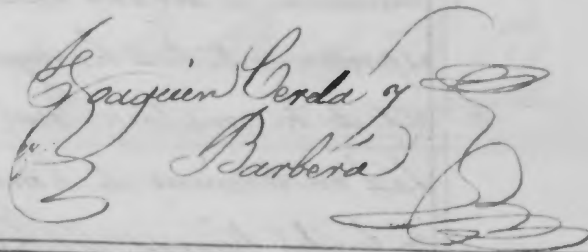 Joaquin Cerdá y
Barberá